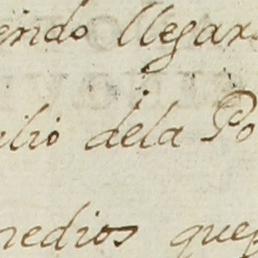 endo llegar
ilio dela Po
medios que